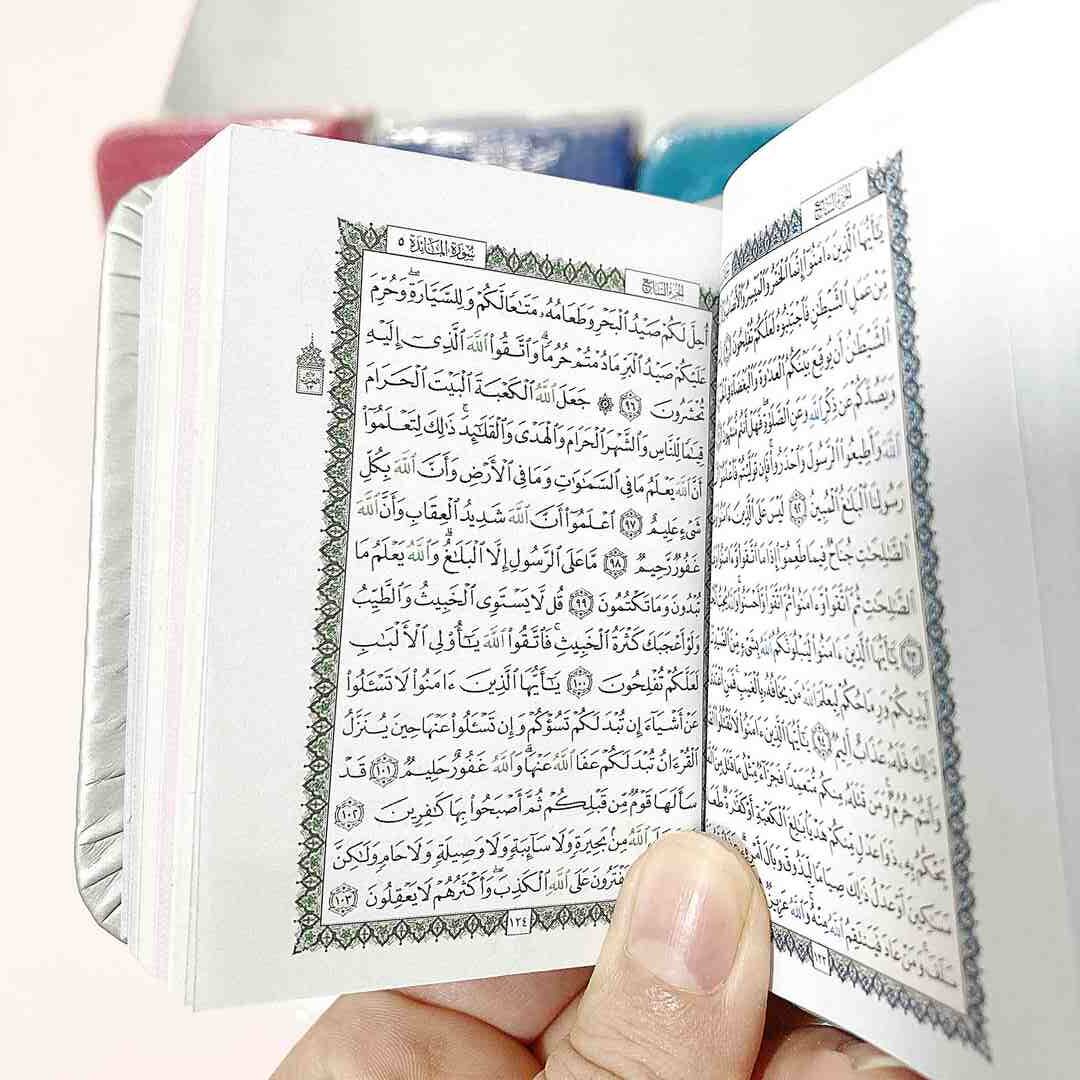 الجزء السابع
يَٰٓأَيُّهَا ٱلَّذِينَ ءَامَنُوٓا۟ إِنَّمَا ٱلْخَمْرُ وَٱلْمَيْسِرُ
مِّنْ عَمَلِ ٱلشَّيْطَٰنِ فَٱجْتَنِبُوهُ لَعَلَّكُمْ تُفْلِحُونَ
ٱلشَّيْطَٰنُ أَن يُوقِعَ بَيْنَكُمُ ٱلْعَدَٰوَةَ وَٱلْبَغْضَآءَ
وَيَصُدَّكُمْ عَن ذِكْرِ ٱللَّهِ وَعَنِ ٱلصَّلَوٰةِ ۖ فَهَلْ أَنتُم مُّنتَهُونَ
ٱللَّهَ وَأَطِيعُوا۟ ٱلرَّسُولَ وَٱحْذَرُوا۟ ۚ فَإِن تَوَلَّيْتُمْ فَٱعْلَمُوٓا۟
رَسُولِنَا ٱلْبَلَٰغُ ٱلْمُبِينُ ٩٢ لَيْسَ عَلَى ٱلَّذِينَ ءَامَنُوا۟
ٱلصَّٰلِحَٰتِ جُنَاحٌ فِيمَا طَعِمُوٓا۟ إِذَا مَا ٱتَّقَوا۟ وَّءَامَنُوا۟
ٱلصَّٰلِحَٰتِ ثُمَّ ٱتَّقَوا۟ وَّءَامَنُوا۟ ثُمَّ ٱتَّقَوا۟ وَّأَحْسَنُوا۟ ۗ وَٱللَّهُ
٩٣ يَٰٓأَيُّهَا ٱلَّذِينَ ءَامَنُوا۟ لَيَبْلُوَنَّكُمُ ٱللَّهُ بِشَىْءٍ مِّنَ ٱلصَّيْدِ
أَيْدِيكُمْ وَرِمَاحُكُمْ لِيَعْلَمَ ٱللَّهُ مَن يَخَافُهُۥ بِٱلْغَيْبِ ۚ فَمَنِ ٱعْتَدَىٰ
ذَٰلِكَ فَلَهُۥ عَذَابٌ أَلِيمٌ ٩٤ يَٰٓأَيُّهَا ٱلَّذِينَ ءَامَنُوا۟ لَا تَقْتُلُوا۟
وَأَنتُمْ حُرُمٌ ۚ وَمَن قَتَلَهُۥ مِنكُم مُّتَعَمِّدًا فَجَزَآءٌ مِّثْلُ مَا قَتَلَ مِنَ
يَحْكُمُ بِهِۦ ذَوَا عَدْلٍ مِّنكُمْ هَدْيًۢا بَٰلِغَ ٱلْكَعْبَةِ أَوْ كَفَّٰرَةٌ
مَسَٰكِينَ أَوْ عَدْلُ ذَٰلِكَ صِيَامًا لِّيَذُوقَ وَبَالَ أَمْرِهِۦ
سَلَفَ ۚ وَمَنْ عَادَ فَيَنتَقِمُ ٱللَّهُ مِنْهُ ۗ وَٱللَّهُ عَزِيزٌ
١٢٣
الجزء السابع
سورة المائدة ٥
أُحِلَّ لَكُمْ صَيْدُ ٱلْبَحْرِ وَطَعَامُهُۥ مَتَٰعًا لَّكُمْ وَلِلسَّيَّارَةِ ۖ وَحُرِّمَ
عَلَيْكُمْ صَيْدُ ٱلْبَرِّ مَا دُمْتُمْ حُرُمًا ۗ وَٱتَّقُوا۟ ٱللَّهَ ٱلَّذِىٓ إِلَيْهِ
تُحْشَرُونَ ٩٦ ۞ جَعَلَ ٱللَّهُ ٱلْكَعْبَةَ ٱلْبَيْتَ ٱلْحَرَامَ
قِيَٰمًا لِّلنَّاسِ وَٱلشَّهْرَ ٱلْحَرَامَ وَٱلْهَدْىَ وَٱلْقَلَٰٓئِدَ ۚ ذَٰلِكَ لِتَعْلَمُوٓا۟
أَنَّ ٱللَّهَ يَعْلَمُ مَا فِى ٱلسَّمَٰوَٰتِ وَمَا فِى ٱلْأَرْضِ وَأَنَّ ٱللَّهَ بِكُلِّ
شَىْءٍ عَلِيمٌ ٩٧ ٱعْلَمُوٓا۟ أَنَّ ٱللَّهَ شَدِيدُ ٱلْعِقَابِ وَأَنَّ ٱللَّهَ
غَفُورٌ رَّحِيمٌ ٩٨ مَّا عَلَى ٱلرَّسُولِ إِلَّا ٱلْبَلَٰغُ ۗ وَٱللَّهُ يَعْلَمُ مَا
تُبْدُونَ وَمَا تَكْتُمُونَ ٩٩ قُل لَّا يَسْتَوِى ٱلْخَبِيثُ وَٱلطَّيِّبُ
وَلَوْ أَعْجَبَكَ كَثْرَةُ ٱلْخَبِيثِ ۚ فَٱتَّقُوا۟ ٱللَّهَ يَٰٓأُو۟لِى ٱلْأَلْبَٰبِ
لَعَلَّكُمْ تُفْلِحُونَ ١٠٠ يَٰٓأَيُّهَا ٱلَّذِينَ ءَامَنُوا۟ لَا تَسْـَٔلُوا۟
عَنْ أَشْيَآءَ إِن تُبْدَ لَكُمْ تَسُؤْكُمْ وَإِن تَسْـَٔلُوا۟ عَنْهَا حِينَ يُنَزَّلُ
ٱلْقُرْءَانُ تُبْدَ لَكُمْ عَفَا ٱللَّهُ عَنْهَا ۗ وَٱللَّهُ غَفُورٌ حَلِيمٌ ١٠١ قَدْ
سَأَلَهَا قَوْمٌ مِّن قَبْلِكُمْ ثُمَّ أَصْبَحُوا۟ بِهَا كَٰفِرِينَ ١٠٢
ٱللَّهُ مِنۢ بَحِيرَةٍ وَلَا سَآئِبَةٍ وَلَا وَصِيلَةٍ وَلَا حَامٍ ۙ وَلَٰكِنَّ
يَفْتَرُونَ عَلَى ٱللَّهِ ٱلْكَذِبَ ۖ وَأَكْثَرُهُمْ لَا يَعْقِلُونَ ١٠٣
١٢٤